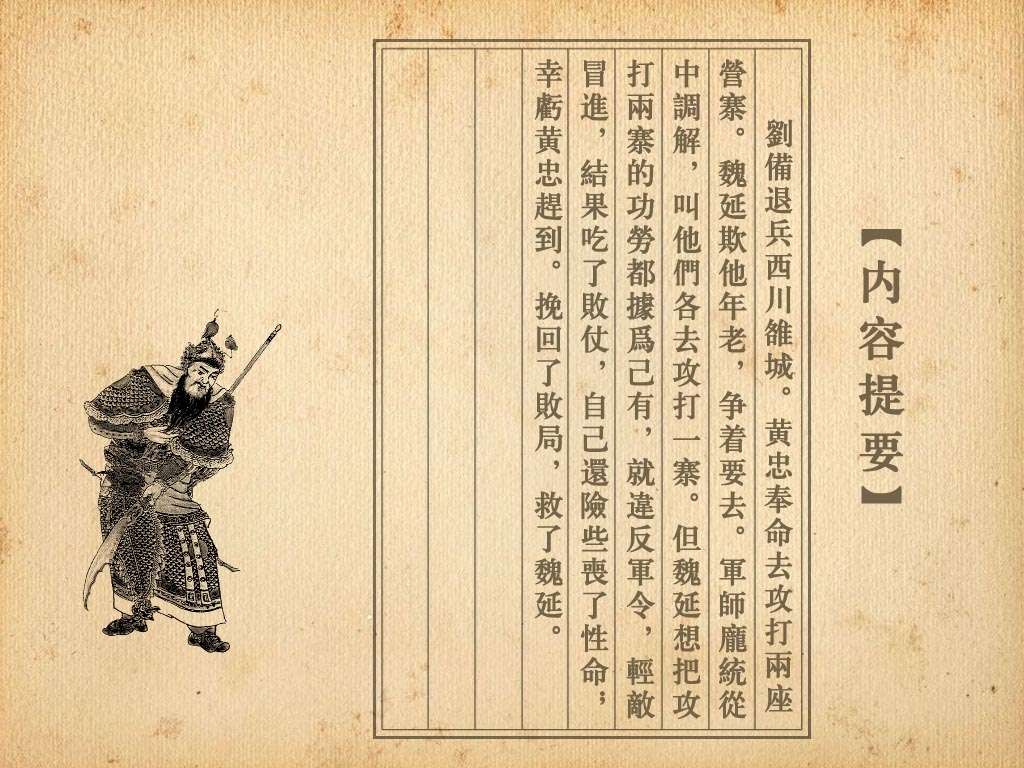 【内容提要】
劉備退兵西川雒城。黄忠奉命去攻打兩座
營寨。魏延欺他年老，争着要去。軍師龐統從
中調解，叫他們各去攻打一寨。但魏延想把攻
打兩寨的功勞都據爲己有，就違反軍令，輕敵
冒進，結果吃了敗仗，自己還險些喪了性命；
幸虧黄忠趕到。挽回了敗局，救了魏延。